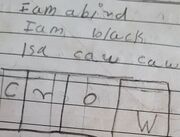 I am a bird
I am black
Isa caw caw
C r o W